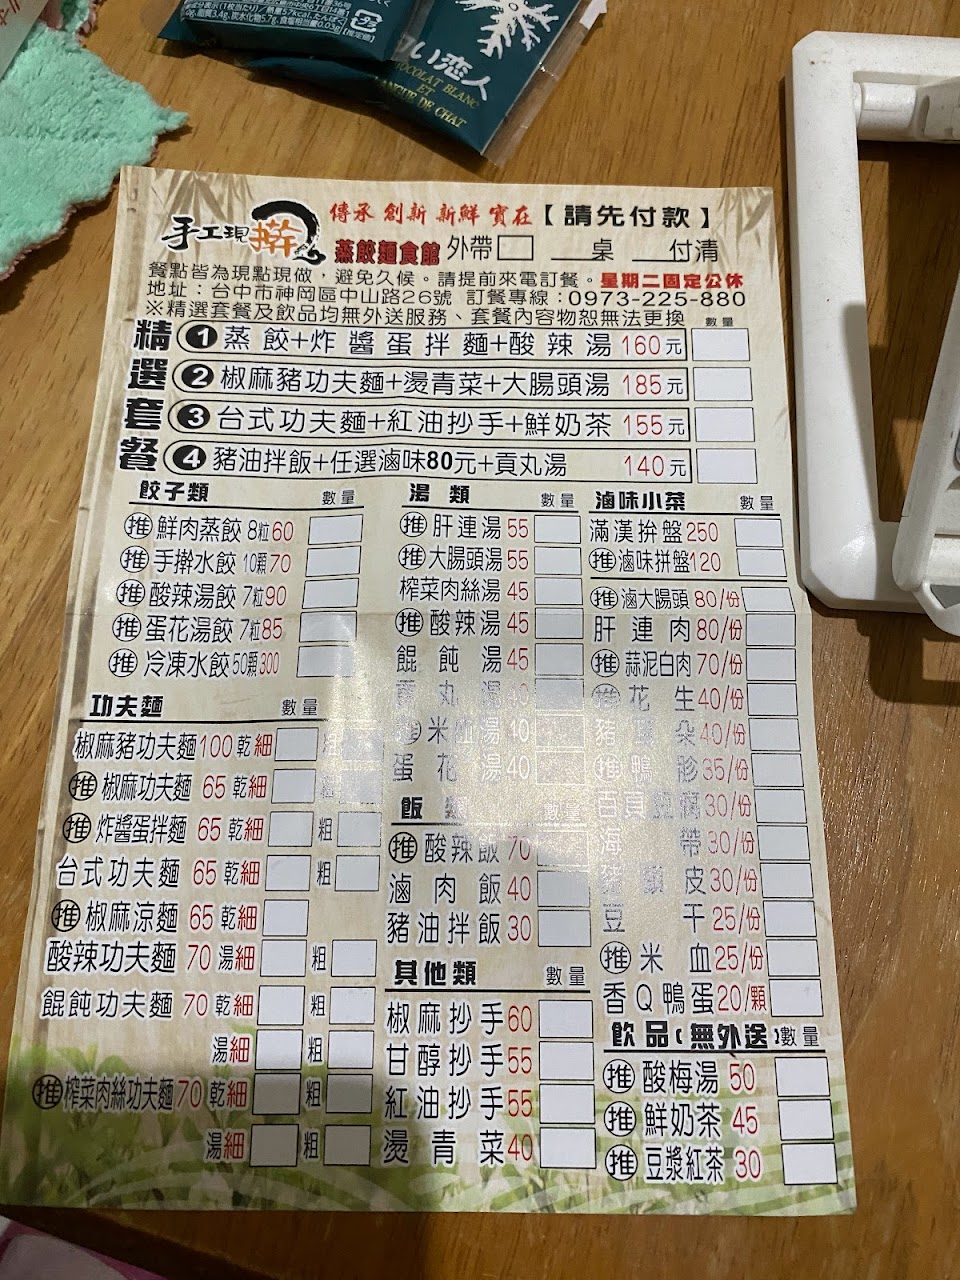 い恋人
CHOCOLAT BLANC
ET
LANGUE DE CHAT
手工現擀
傳承 創新 新鮮 實在【請先付款】
蒸餃麵食館 外帶 桌 付清
餐點皆為現點現做，避免久候。請提前來電訂餐。星期二固定公休
地址：台中市神岡區中山路26號 訂餐專線：0973-225-880
※精選套餐及飲品均無外送服務、套餐內容物恕無法更換 數量
精選套餐
1 蒸餃+炸醬蛋拌麵+酸辣湯 160元
2 椒麻豬功夫麵+燙青菜+大腸頭湯 185元
3 台式功夫麵+紅油抄手+鮮奶茶 155元
4 豬油拌飯+任選滷味80元+貢丸湯 140元
餃子類 數量
推 鮮肉蒸餃 8粒60
推 手擀水餃 10顆70
推 酸辣湯餃 7粒90
推 蛋花湯餃 7粒85
推 冷凍水餃50顆300
功夫麵 數量
椒麻豬功夫麵100乾細 粗
推 椒麻功夫麵 65 乾細
推 炸醬蛋拌麵 65 乾細 粗
台式功夫麵 65 乾細 粗
推 椒麻涼麵 65 乾細
酸辣功夫麵 70 湯細 粗
餛飩功夫麵 70 乾細 粗
湯細 粗
推 榨菜肉絲功夫麵70 乾細 粗
湯細 粗
湯類 數量
推 肝連湯 55
推 大腸頭湯 55
榨菜肉絲湯 45
推 酸辣湯 45
餛飩湯 45
貢丸湯 40
推 米血湯 40
蛋花湯 40
飯類 數量
推 酸辣飯 70
滷肉飯 40
豬油拌飯 30
其他類 數量
椒麻抄手60
甘醇抄手55
紅油抄手55
燙青菜40
滷味小菜 數量
滿漢拚盤250
推 滷味拼盤120
推 滷大腸頭 80/份
肝連肉80/份
推 蒜泥白肉 70/份
推 花生40/份
豬耳朵40/份
推 鴨胗35/份
百頁豆腐30/份
海帶30/份
豬頭皮30/份
豆干25/份
推 米血25/份
香Q鴨蛋20/顆
飲品(無外送)數量
推 酸梅湯 50
推 鮮奶茶 45
推 豆漿紅茶 30